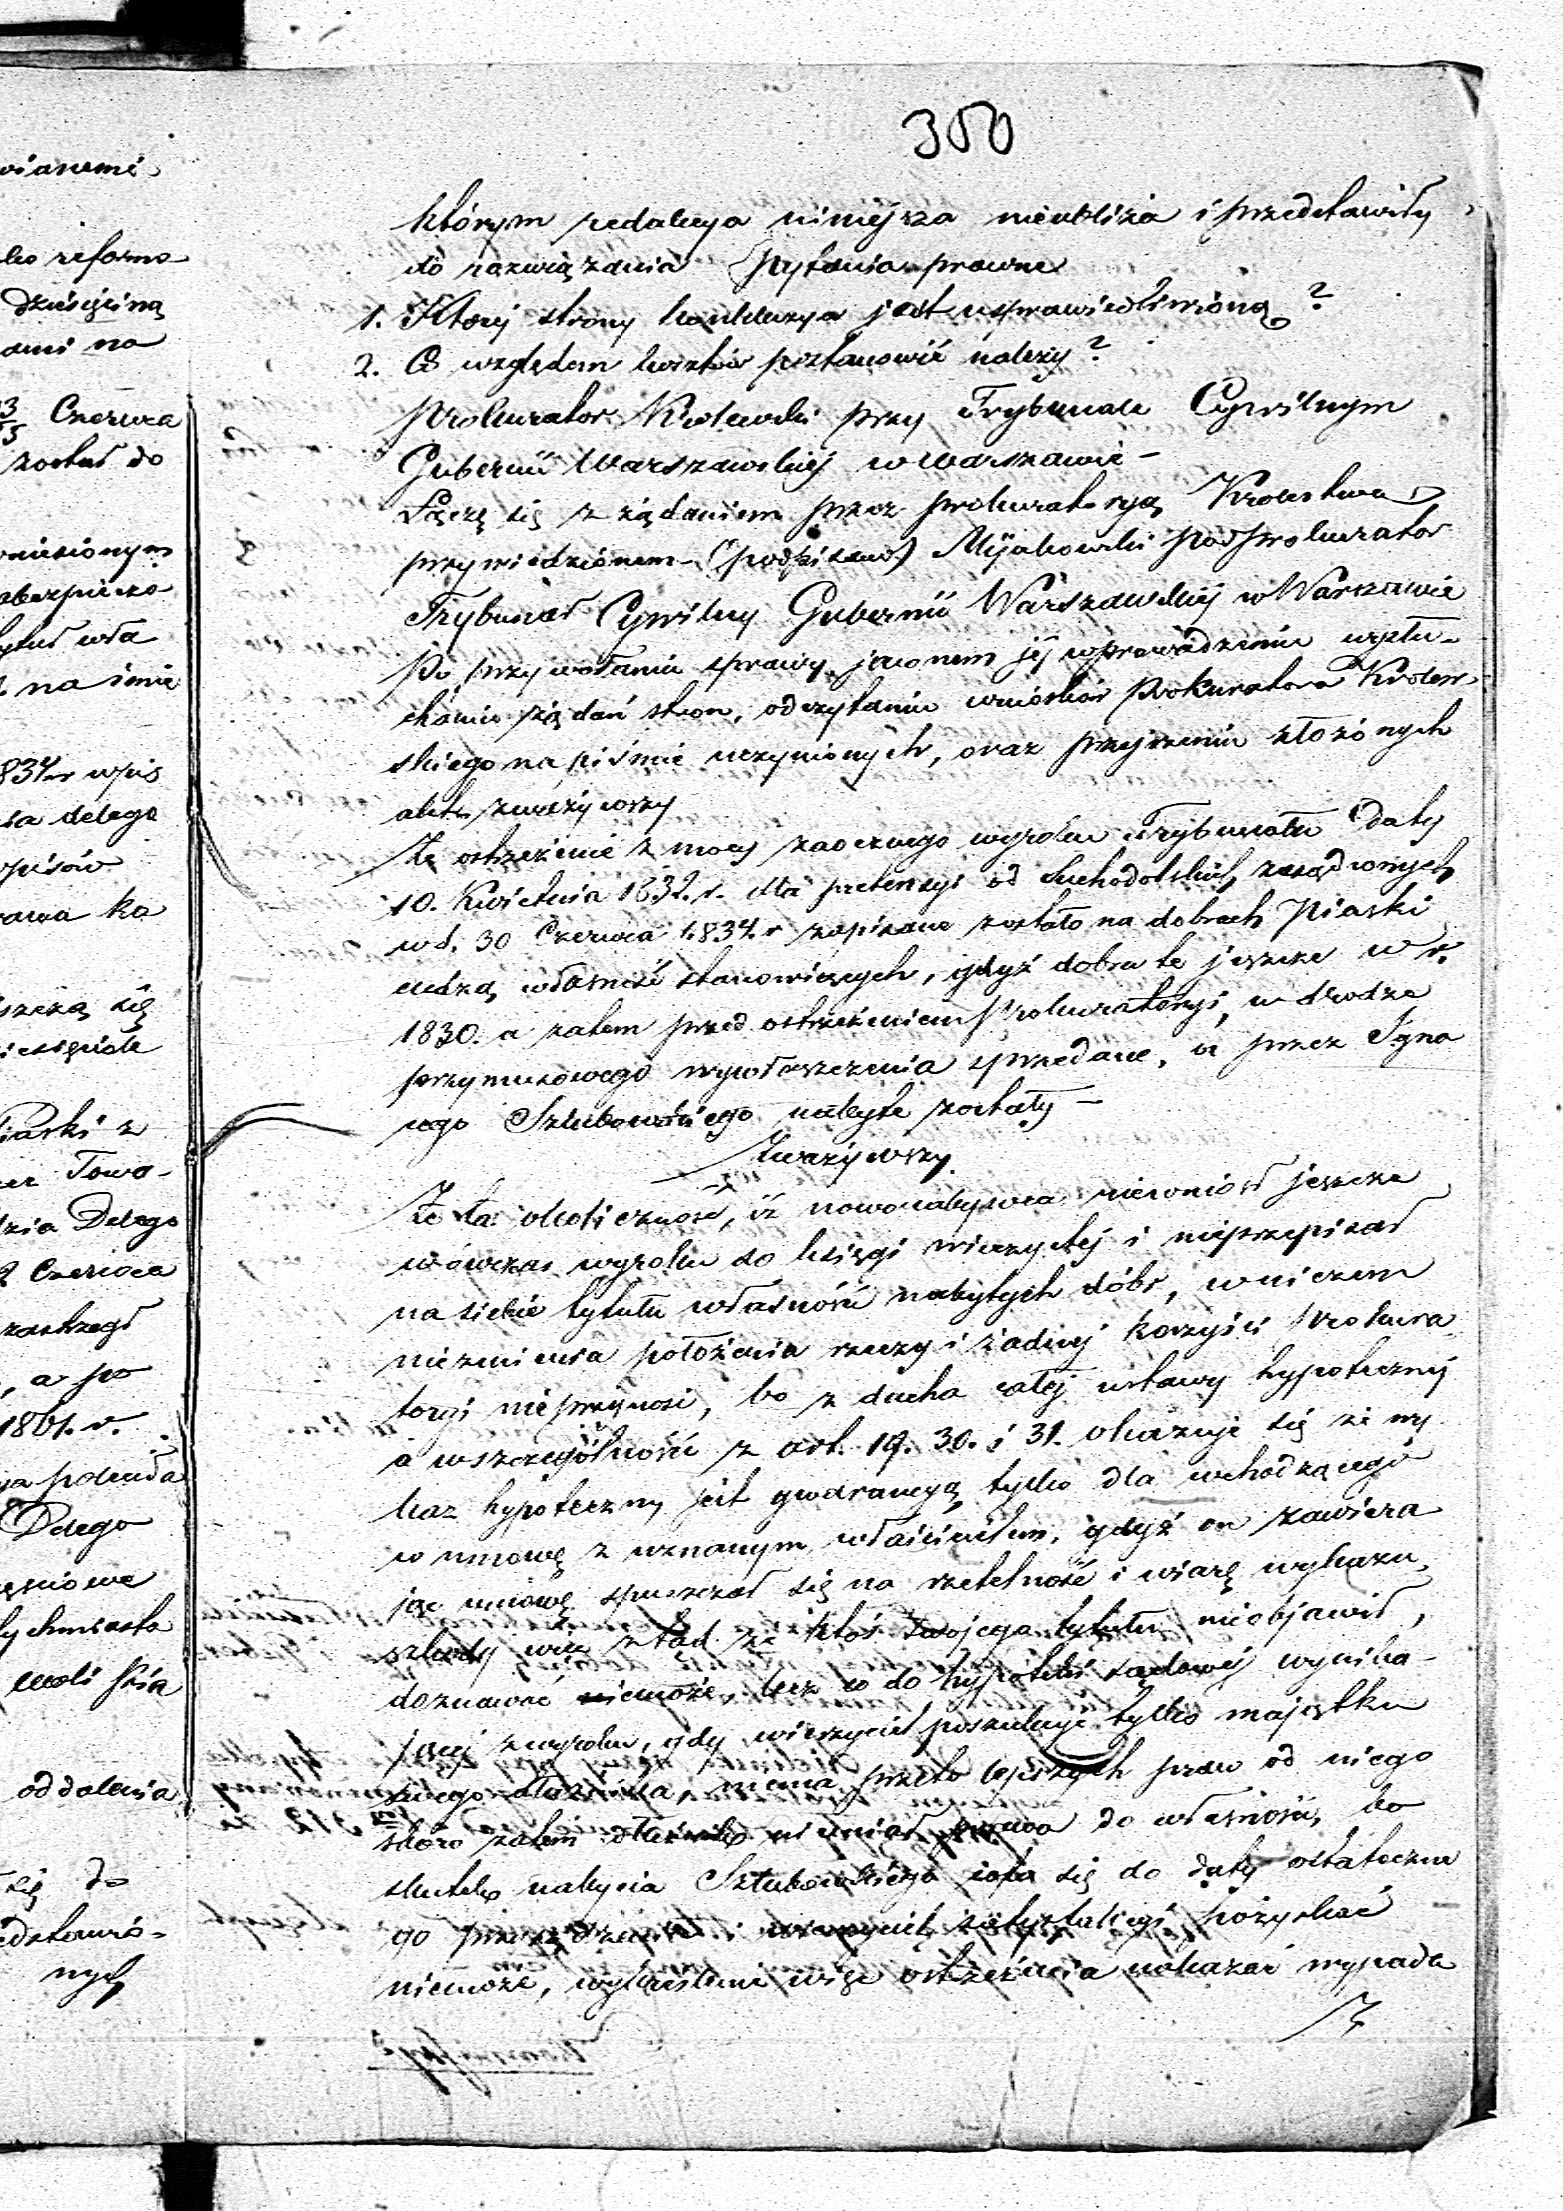 350
którym redakcya niniejsza nieubliża i przedstawiły
do rozwiązania pytania prawne
1. Któréj strony konkluzya jest usprawiedliwioną?
2. Co względem kosztów postanowić należy?
Prokurator Królewski przy Trybunale Cywilnym
Gubernii Warszawskiéj w Warszawie –
Łączę się z żądaniem przez prokuratoryą Królestwa
przywiedzionem – (podpisano) Mijakowski Podprokurator
Trybunał Cywilny Gubernii Warszawskiéj w Warszawie
Po przywołaniu sprawy, jawnem jéj wprowadzeniu wysłu-
chaniu żądań stron, odczytaniu wniosków Prokuratora Królew-
skiego na piśmie uczynionych, oraz przejrzeniu złożonych
akt, zważywszy
Że ostrzeżenie z mocy zaocznego wyroku Trybunału daty
10. Kwietnia 1832. r. dla pretensyi od Suchodolskich zasądzonych
w d. 30 Czerwca 1834. r zapisane zostało na dobrach Piaski
cudzą własność stanowiących, gdyż dobra te jeszcze w r.
1830. a zatem przed ostrzeżeniem Prokuratoryi, w drodze
przymusowego wywłaszczenia sprzedane, a przez Igna
cego Sztubowskiego nabyte zostały –
Zważywszy
Że ta okoliczność, iż nowonabywca niewniósł jeszcze
wówczas wyroku do księgi wieczystéj i nieprzepisał
na siebie tytułu własności nabytych dóbr, w niczem
niezmienia położenia rzeczy i żadnéj korzyści Prokura
toryi nieprzynosi, bo z ducha całéj ustawy hypotecznéj
a wszczególności z art. 19. 30. i 31. okazuje się że wy
kaz hypoteczny jest gwarancyą tylko dla wchodzącego
w umowę z uznanym właścicielem, gdyż on zawiera
jąc umowę spuszczał się na rzetelność i wiarę wykazu,
szkody więc ztąd że ktoś swojego tytułu nieobjawił,
doznawać niemoże, lecz co do hypoteki sądowéj wynika-
jącéj z wyroku, gdy wierzyciel poszukuje tylko majątku
swego dłużnika, niema przeto lepszych praw od niego
skoro zatem dłużnik niemiał prawa do własności, bo
skutek nabycia Sztubowskiego cofa się do daty ostateczne
go przysądzenia i wierzyciel satysfakcyi pozyskać
niemoże, wykreślenie więc ostrzeżenia nakazać wypada
Że
wianemi
dziesięciną
ami na
Czerwca
został do
na imie
1834 r wpis
wpisów
Piaski z
Towa-
Delego
Czerwca
zastrzegł
, a po
1861. r.
Delego
oddalenia
się do
edstawio-
nych